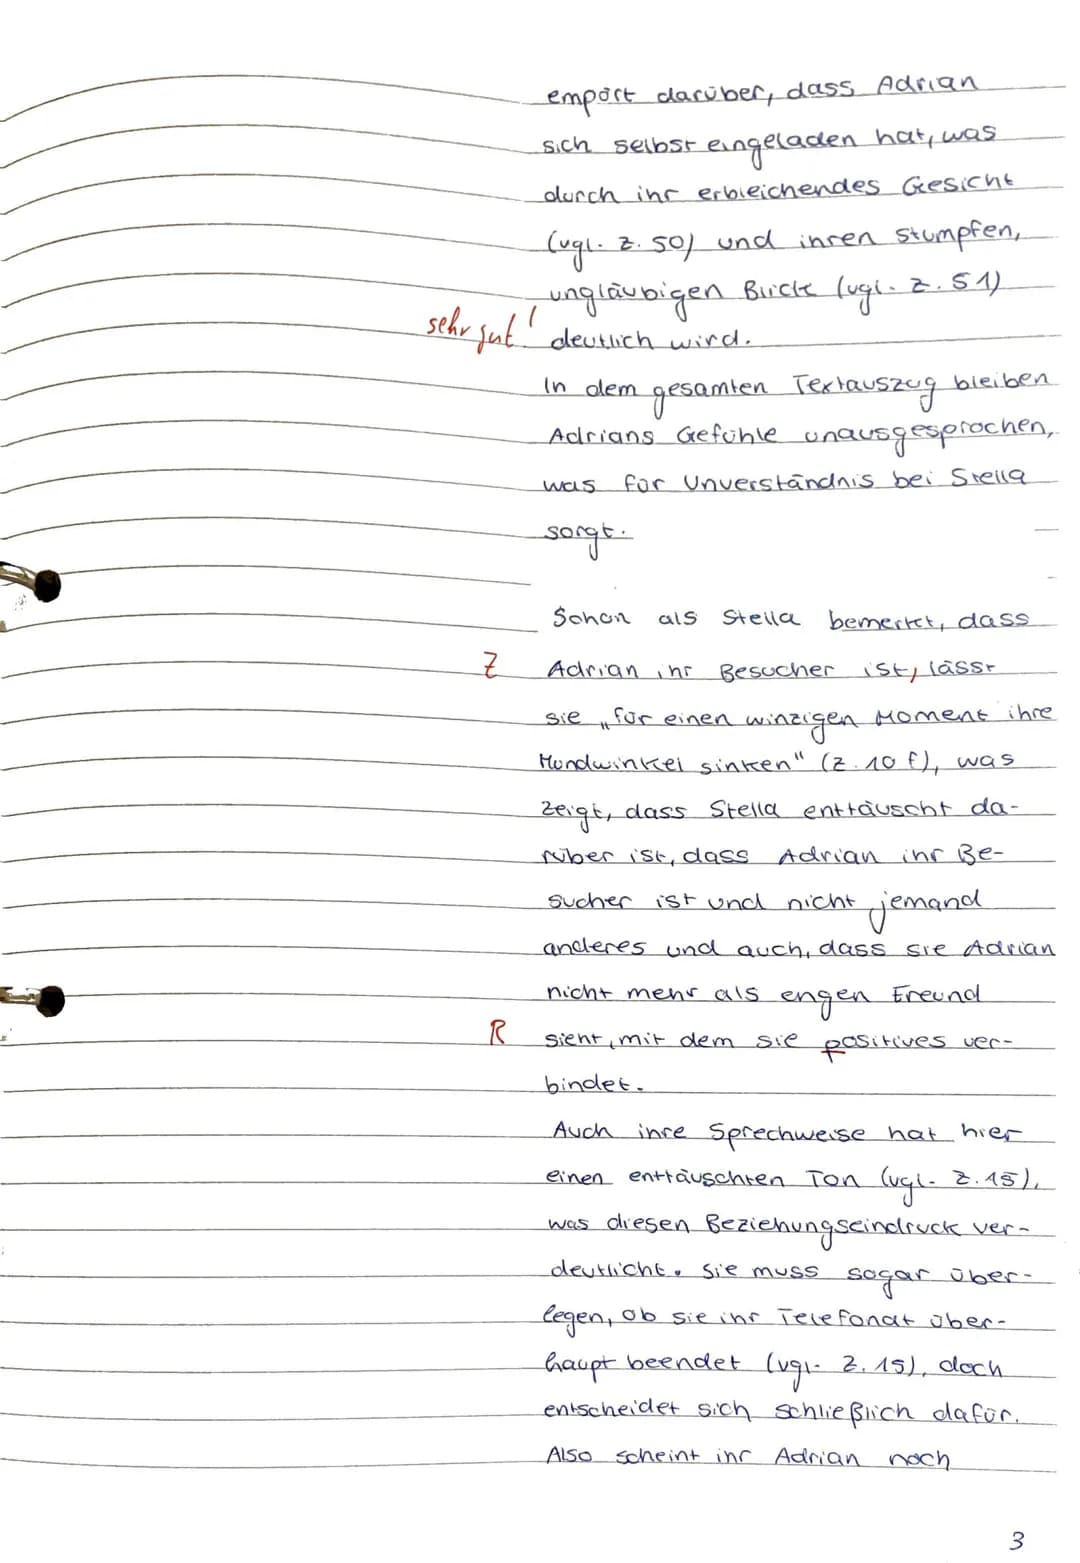 empört darüber, dass Adrian
sich selbst eingeladen hat, was
durch ihr erbleichendes Gesicht
(vgl. Z. 50) und ihren stumpfen,
ungläubigen Blick (vgl. Z. 51)
sehr gut! deutlich wird.
In dem gesamten Textauszug bleiben
Adrians Gefühle unausgesprochen,
was für Unverständnis bei Stella
sorgt.
Schon als Stella bemerket, dass
Z Adrian ihr Besucher ist, lässt
sie „für einen winzigen Moment ihre
Mundwinkel sinken" (Z. 10 f), was
zeigt, dass Stella enttäuscht da-
rüber ist, dass Adrian ihr Be-
sucher ist und nicht jemand
anderes und auch, dass sie Adrian
nicht mehr als engen Freund
R sieht, mit dem sie positives ver-
bindet.
Auch ihre Sprechweise hat hier
einen enttäuschten Ton (vgl. Z. 15),
was diesen Beziehungseindruck ver-
deutlicht. Sie muss sogar über-
legen, ob sie ihr Telefonat über-
haupt beendet (vgl. Z. 15), doch
entscheidet sich schließlich dafür.
Also scheint ihr Adrian noch
3